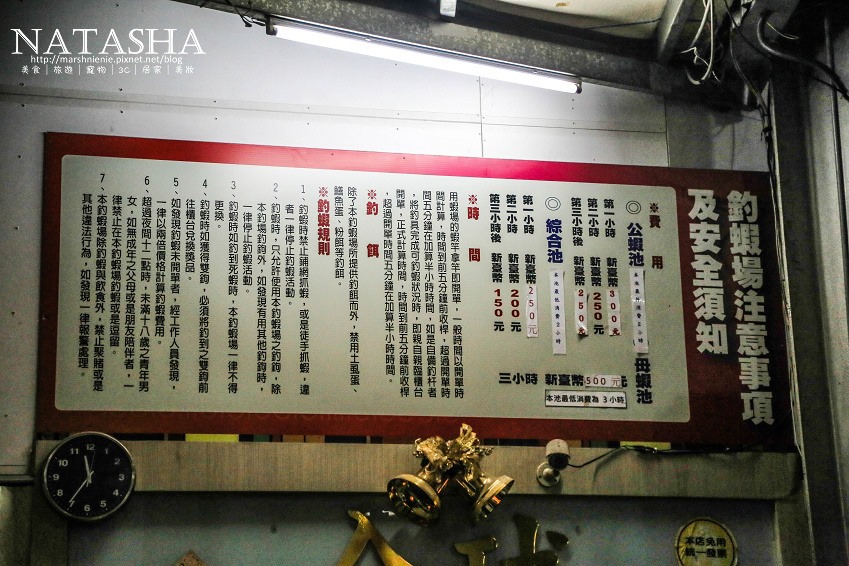 NATASHA
http://marshnienie.pixnet.net/blog
美食│旅遊│寵物│3C│居家│美妝
釣蝦場注意事項
及安全須知
※費用
◎公蝦池
本池最低消費2小時
母蝦池
第一小時 新臺幣300元
第二小時 新臺幣250元
第三小時後 新臺幣250
三小時 新臺幣500元
本池最低消費為3小時
◎綜合池
本池最低消費2小時
第一小時 新臺幣250元
第二小時 新臺幣200元
第三小時後 新臺幣150元
※時間
用蝦場的蝦竿拿竿即開單，一般時間以開單時
間計算，時間到前五分鐘前收桿，超過開單時
間五分鐘在加算半小時時間，如是自備釣杆者
，將釣具完成可釣蝦狀況時，即親自親臨櫃台
開單，正式計算時間，時間到前五分鐘前收桿
，超過開單時間五分鐘在加算半小時時間。
※釣餌
除了本釣蝦場所提供釣餌而外，禁用土虱蛋、
鱔魚蛋、粉餌等釣餌。
※釣蝦規則
1、釣蝦時禁止鋪網抓蝦，或是徒手抓蝦，違
者一律停止釣蝦活動。
2、釣蝦時，只允許使用本釣蝦場之釣鉤，除
本釣場釣鉤外，如發現有用其他釣鉤時，
一律停止釣蝦活動。
3、釣蝦時如釣到死蝦時，本釣蝦場一律不得
更換。
4、釣蝦時如獲得雙鉤，必須將釣到之雙鉤前
往櫃台兌換獎品。
5、如發現釣蝦未開單者，經工作人員發現，
一律以兩倍價格計算釣蝦費用。
6、超過夜間十二點時，未滿十八歲之青年男
女，如無成年之父母或是朋友陪伴者，一
律禁止在本釣蝦場釣蝦或是逗留。
7、本釣蝦場除釣蝦與飲食外，禁止聚賭或是
其他違法行為，如發現一律報警處理。
本店免用
統一發票